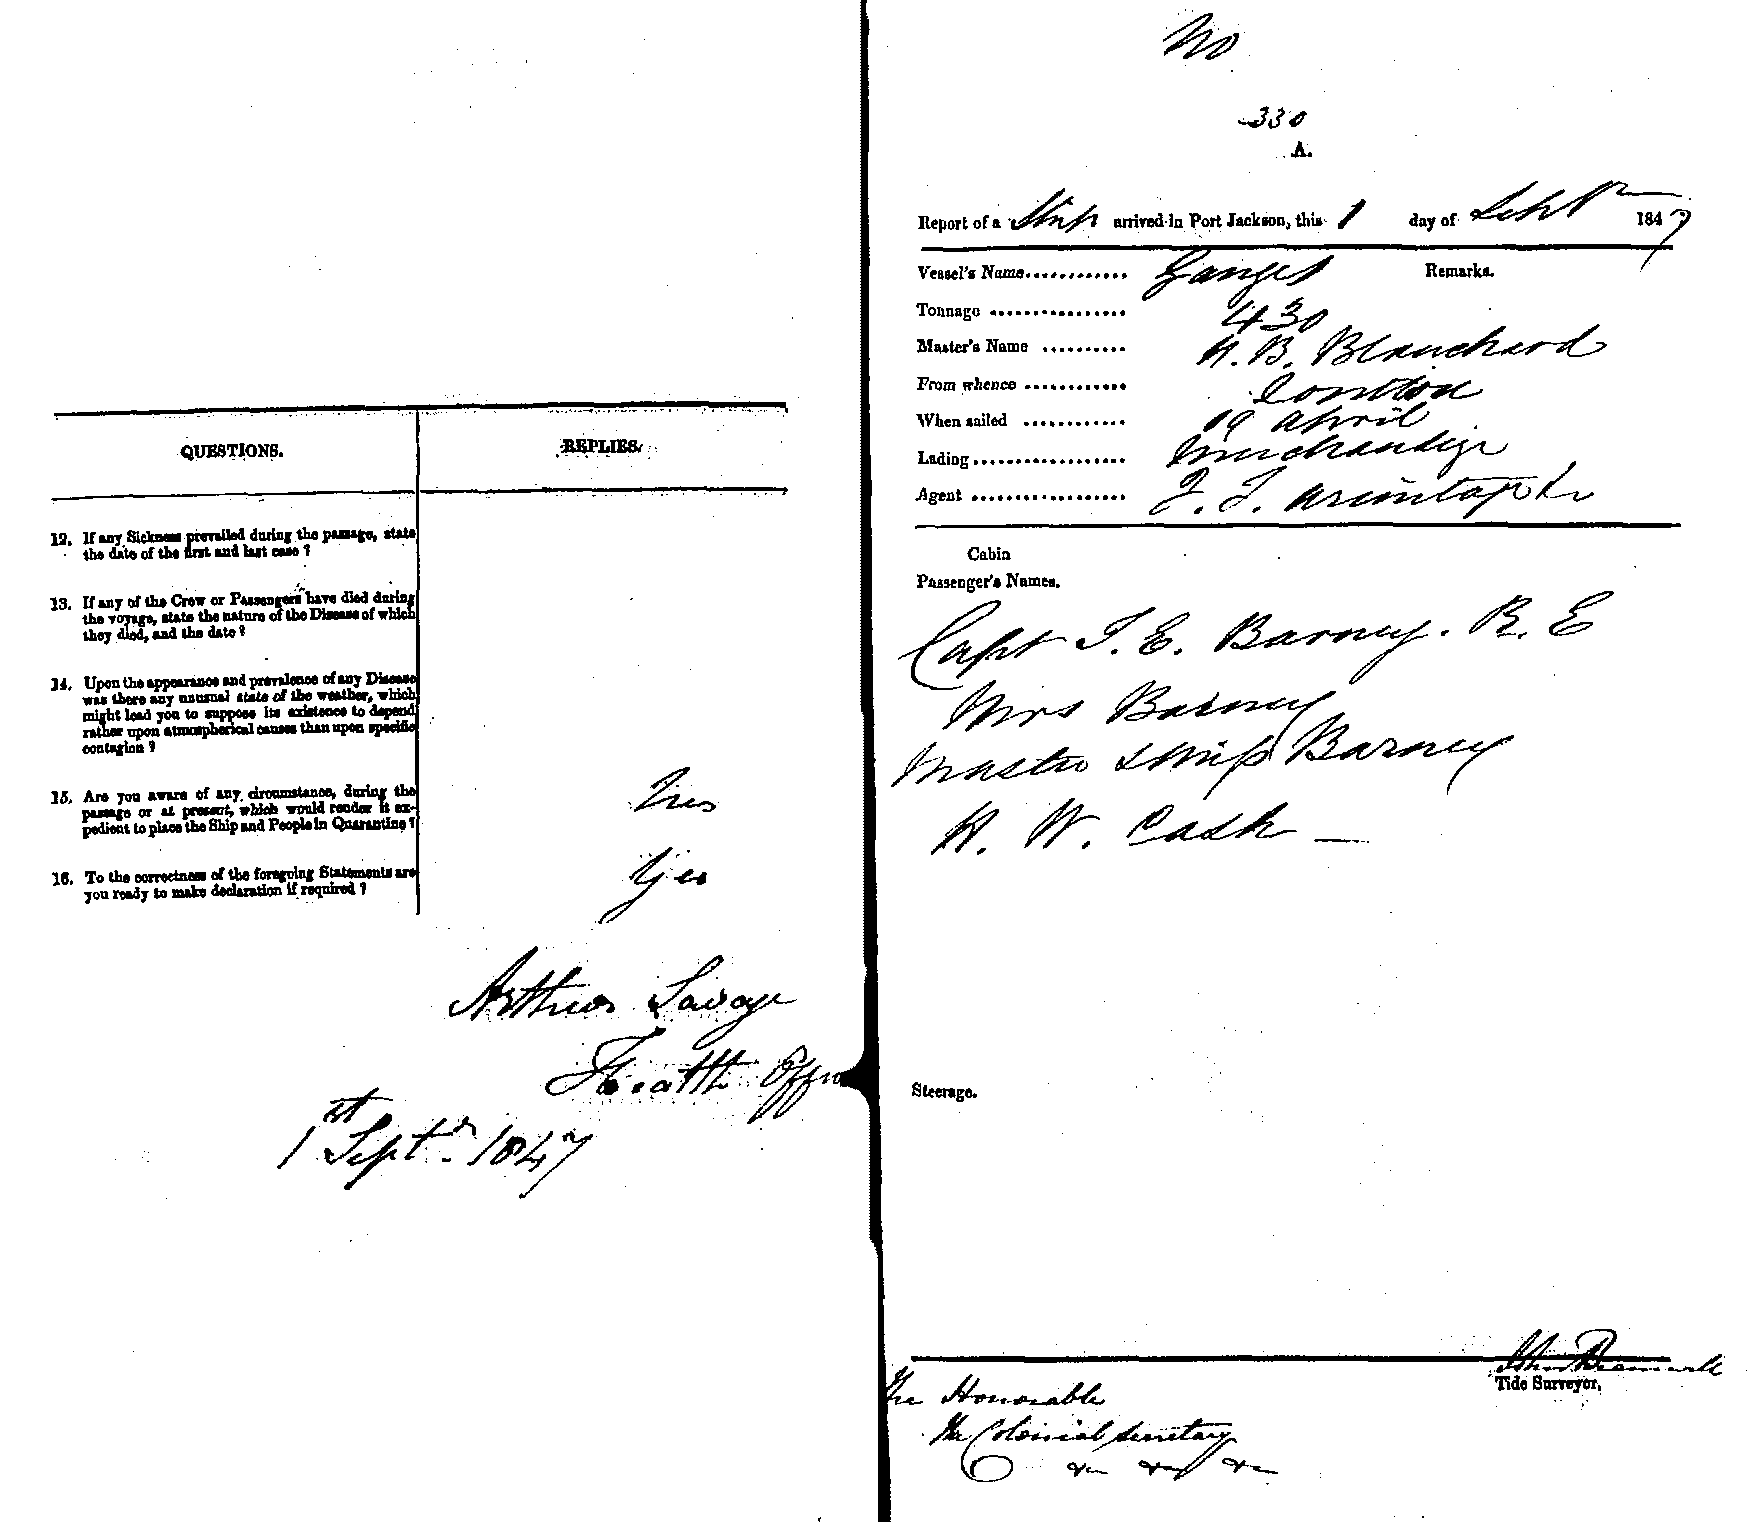 QUESTIONS.
REPLIES.
12. If any Sickness prevailed during the passage, state
the date of the first and last case ?
13. If any of the Crew or Passengers have died during
the voyage, state the nature of the Disease of which
they died, and the date ?
14. Upon the appearance and prevalence of any Disease
was there any unusual state of the weather, which
might lead you to suppose its existence to depend
rather upon atmospherical causes than upon specific
contagion ?
15. Are you aware of any circumstance, during the
passage or at present, which would render it ex-
pedient to place the Ship and People in Quarantine ?
16. To the correctness of the foregoing Statements are
you ready to make declaration if required ?
Yes
Arthur Savage
Health Officer
1st Septr. 1847
No
330
A.
Report of a Ship arrived in Port Jackson, this 1 day of Septr 1847
Vessel's Name............ Ganges
Remarks.
Tonnage ................ 430
Master's Name .......... H. B. Blanchard
From whence ............ London
When sailed ............ 19 April
Lading.................. Merchandize
Agent .................. J. J.
Cabin
Passenger's Names.
Capt J. E. Barney. R. E
Mrs Barney
Master Barney
H. W. Cash —
Steerage.
John
Tide Surveyor,
The Honorable
The Colonial Secretary
&c &c &c